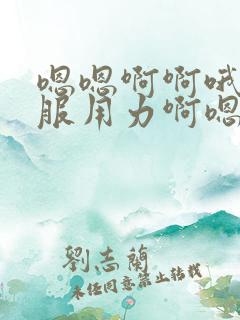 嗯嗯啊啊哦
服用力啊嗯
劉志蘭
未經同意禁止轉載